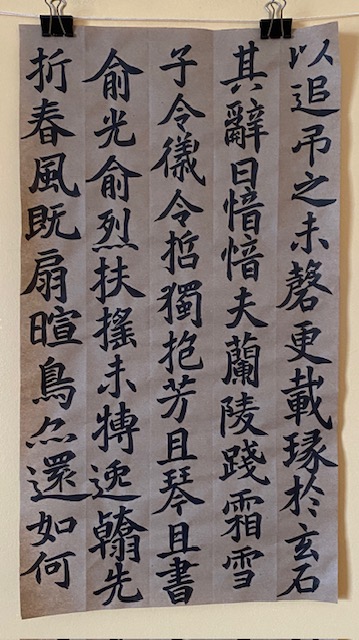 以追吊之未罄更載琢於玄石
其辭曰愔愔夫蘭陵踐霜雪
子令儀令哲獨抱芳且琴且書
俞光俞烈扶搖未摶逸翰先
折春風既扇暄鳥亦還如何